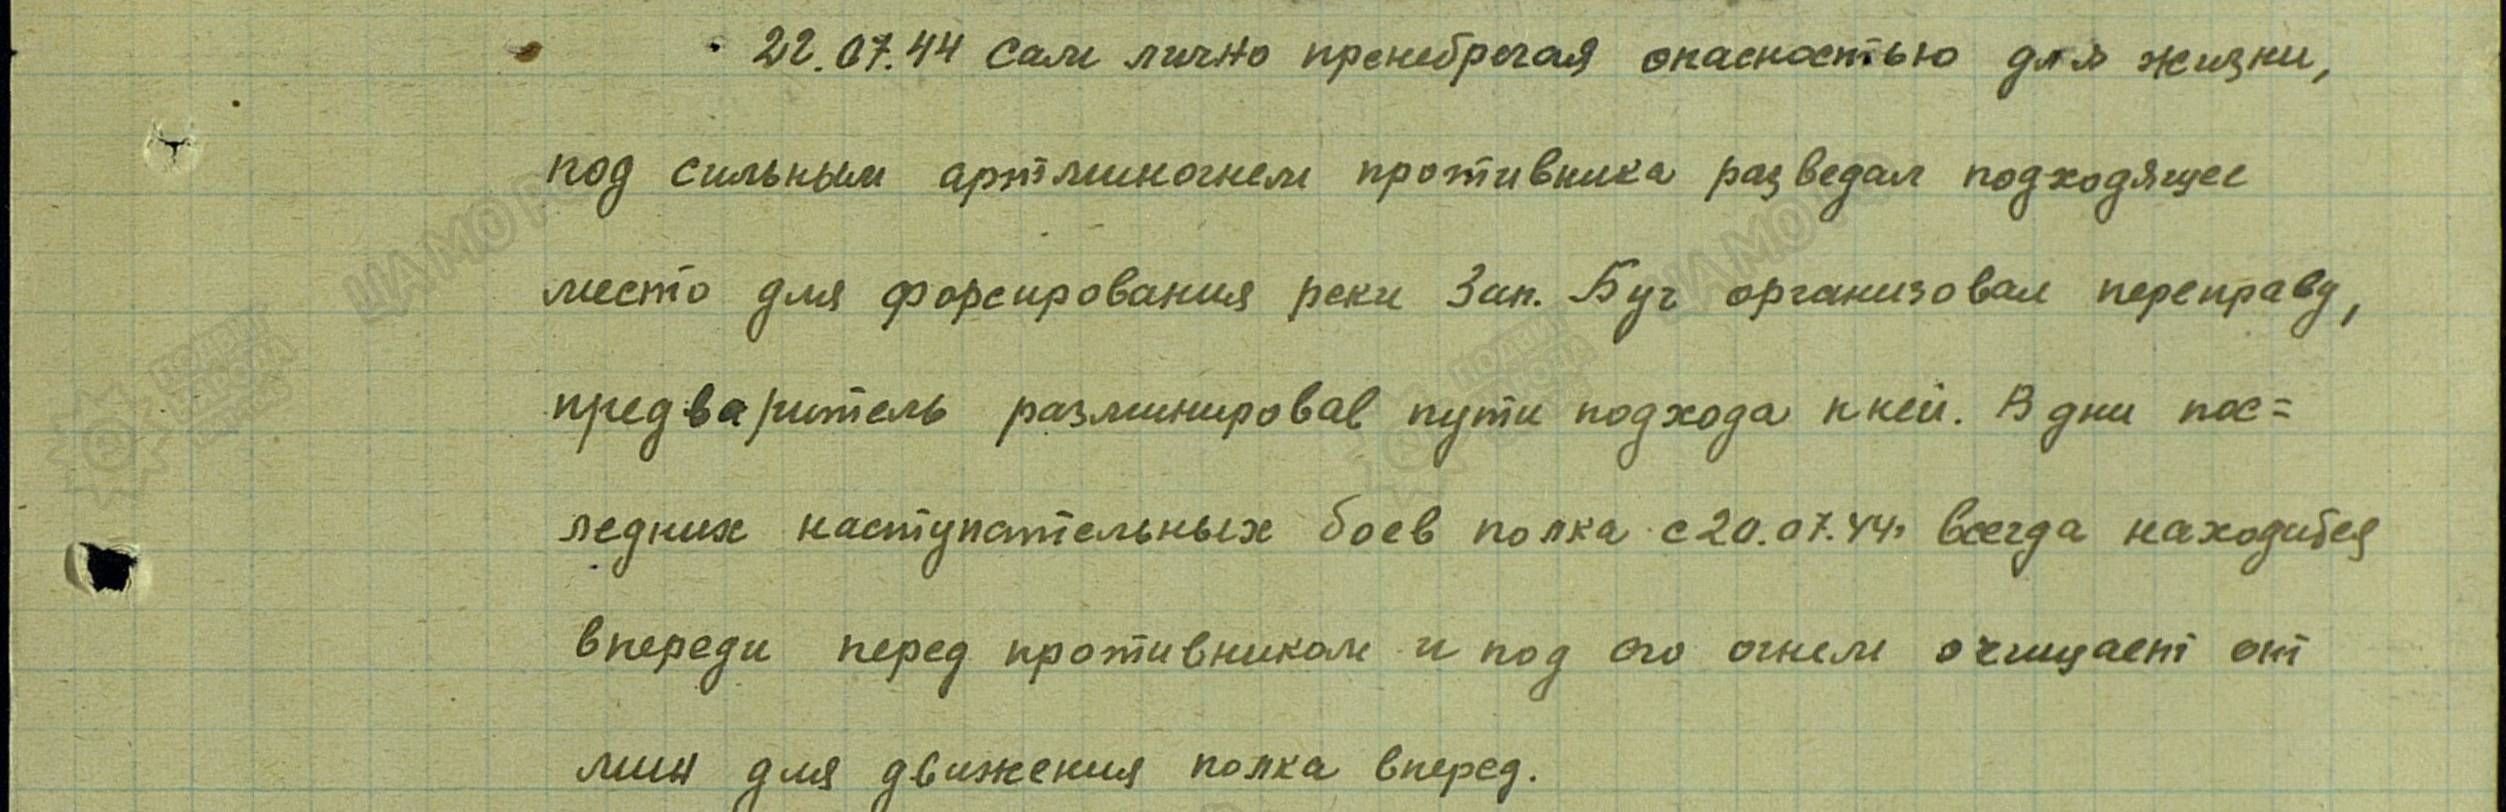 22.07.44 Сам лично пренебрегая опасностью для жизни,
под сильным артминогнем противника разведал подходящее
место для форсирования реки Зап. Буг организовал переправу,
предваритель разминировав пути подхода к ней. В дни пос=
ледних наступательных боев полка с 20.07.44г всегда находится
впереди перед противником и под его огнем очищает от
мин для движения полка вперед.
ЦАМО РФ
ЦАМО РФ
ПОДВИГ
НАРОДА
ПОДВИГ
НАРОДА